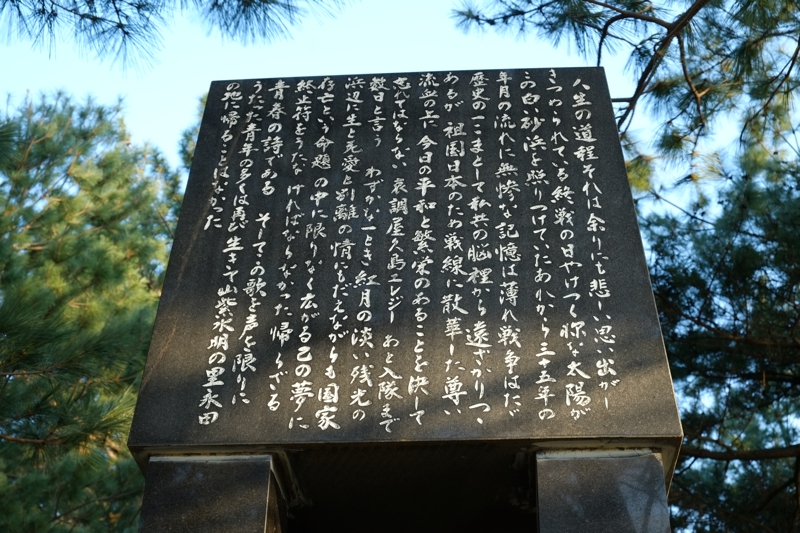 人生の道程それは余りにも悲しい思い出が
きざみこまれている終戦の日やけつく様な太陽が
この白い砂浜を照りつけていたあれから三十五年の
年月の流れに無惨な記憶は薄れ戦争はただ
歴史の一こまとして私共の脳裡から遠ざかりつゝ
あるが 祖国日本のため戦線に散華した尊い
流血の上に今日の平和と繁栄のあることを決して
忘れてはならない 哀調屋久島エレジー あと入隊まで
数日と言う わずかな一とき 紅月の淡い残光の
浜辺に生と死愛と別離の情にもだえながらも国家
存亡という命題の中に限りなく広がる己の夢に
終止符をうたなければならなかった帰らざる
青春の詩である そしてこの歌を声を限りに
うたった青年の多くは再び生きて山紫水明の里永田
の地に帰ることはなかった